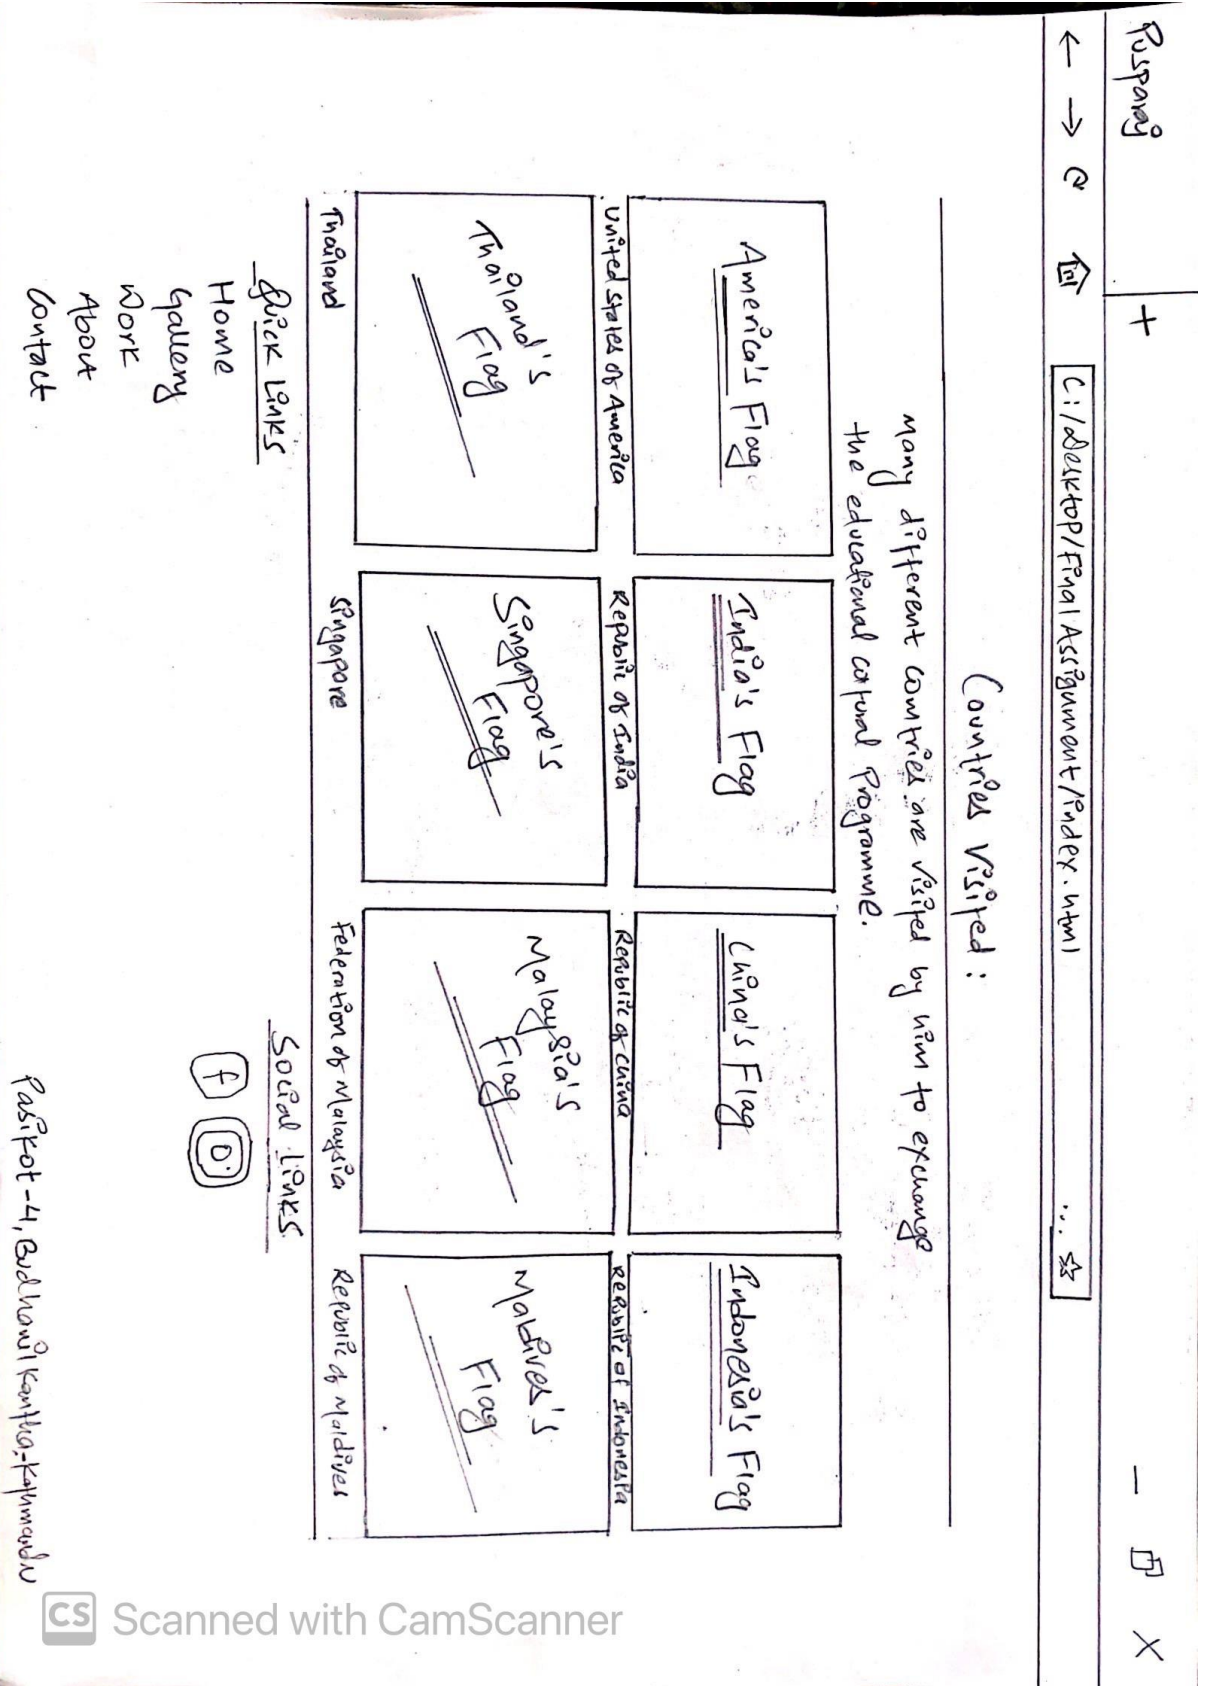 Pusparaj +
C:/Desktop/Final Assignment/index.html
Countries Visited :
Many different countries are visited by him to exchange
the educational catural Programme.
America's Flag
India's Flag
China's Flag
Indonesia's Flag
United States of America
Republic of India
Republic of China
Republic of Indonesia
Thailand's
Flag
Singapore's
Flag
Malaysia's
Flag
Maldives's
Flag
Thailand
Singapore
Federation of Malaysia
Republic of Maldives
Quick Links
Home
Gallery
Work
About
Contact
Social Links
f
Pasikot-4, Budhanilkantha,-Kathmandu
CS Scanned with CamScanner